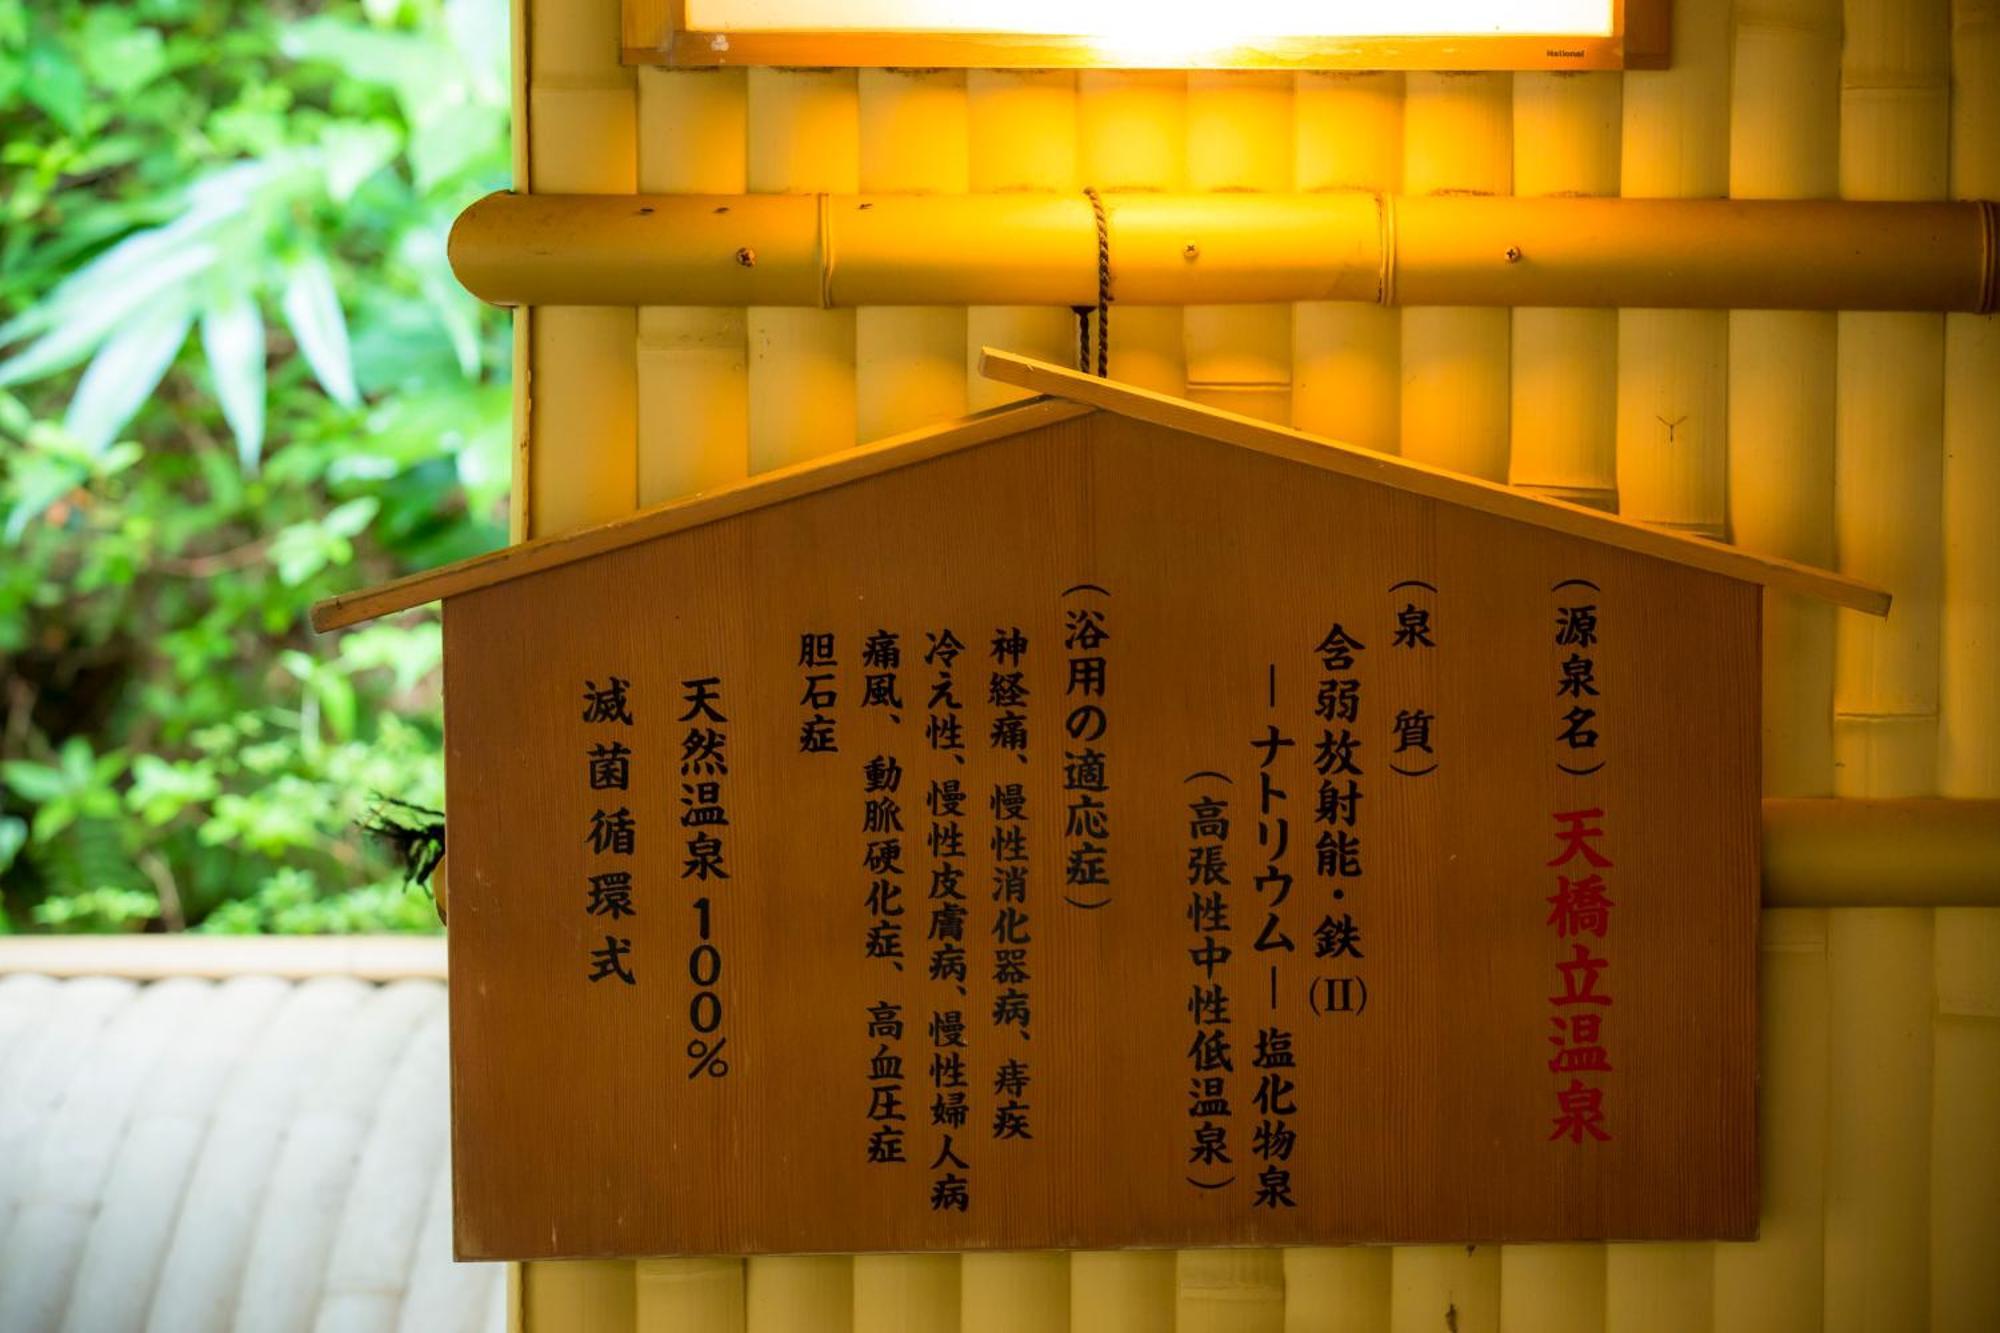 National
（源泉名）天橋立温泉
（泉質）
含弱放射能・鉄(II)
―ナトリウム―塩化物泉
（高張性中性低温泉）
（浴用の適応症）
神経痛、慢性消化器病、痔疾
冷え性、慢性皮膚病、慢性婦人病
痛風、動脈硬化症、高血圧症
胆石症
天然温泉100%
滅菌循環式